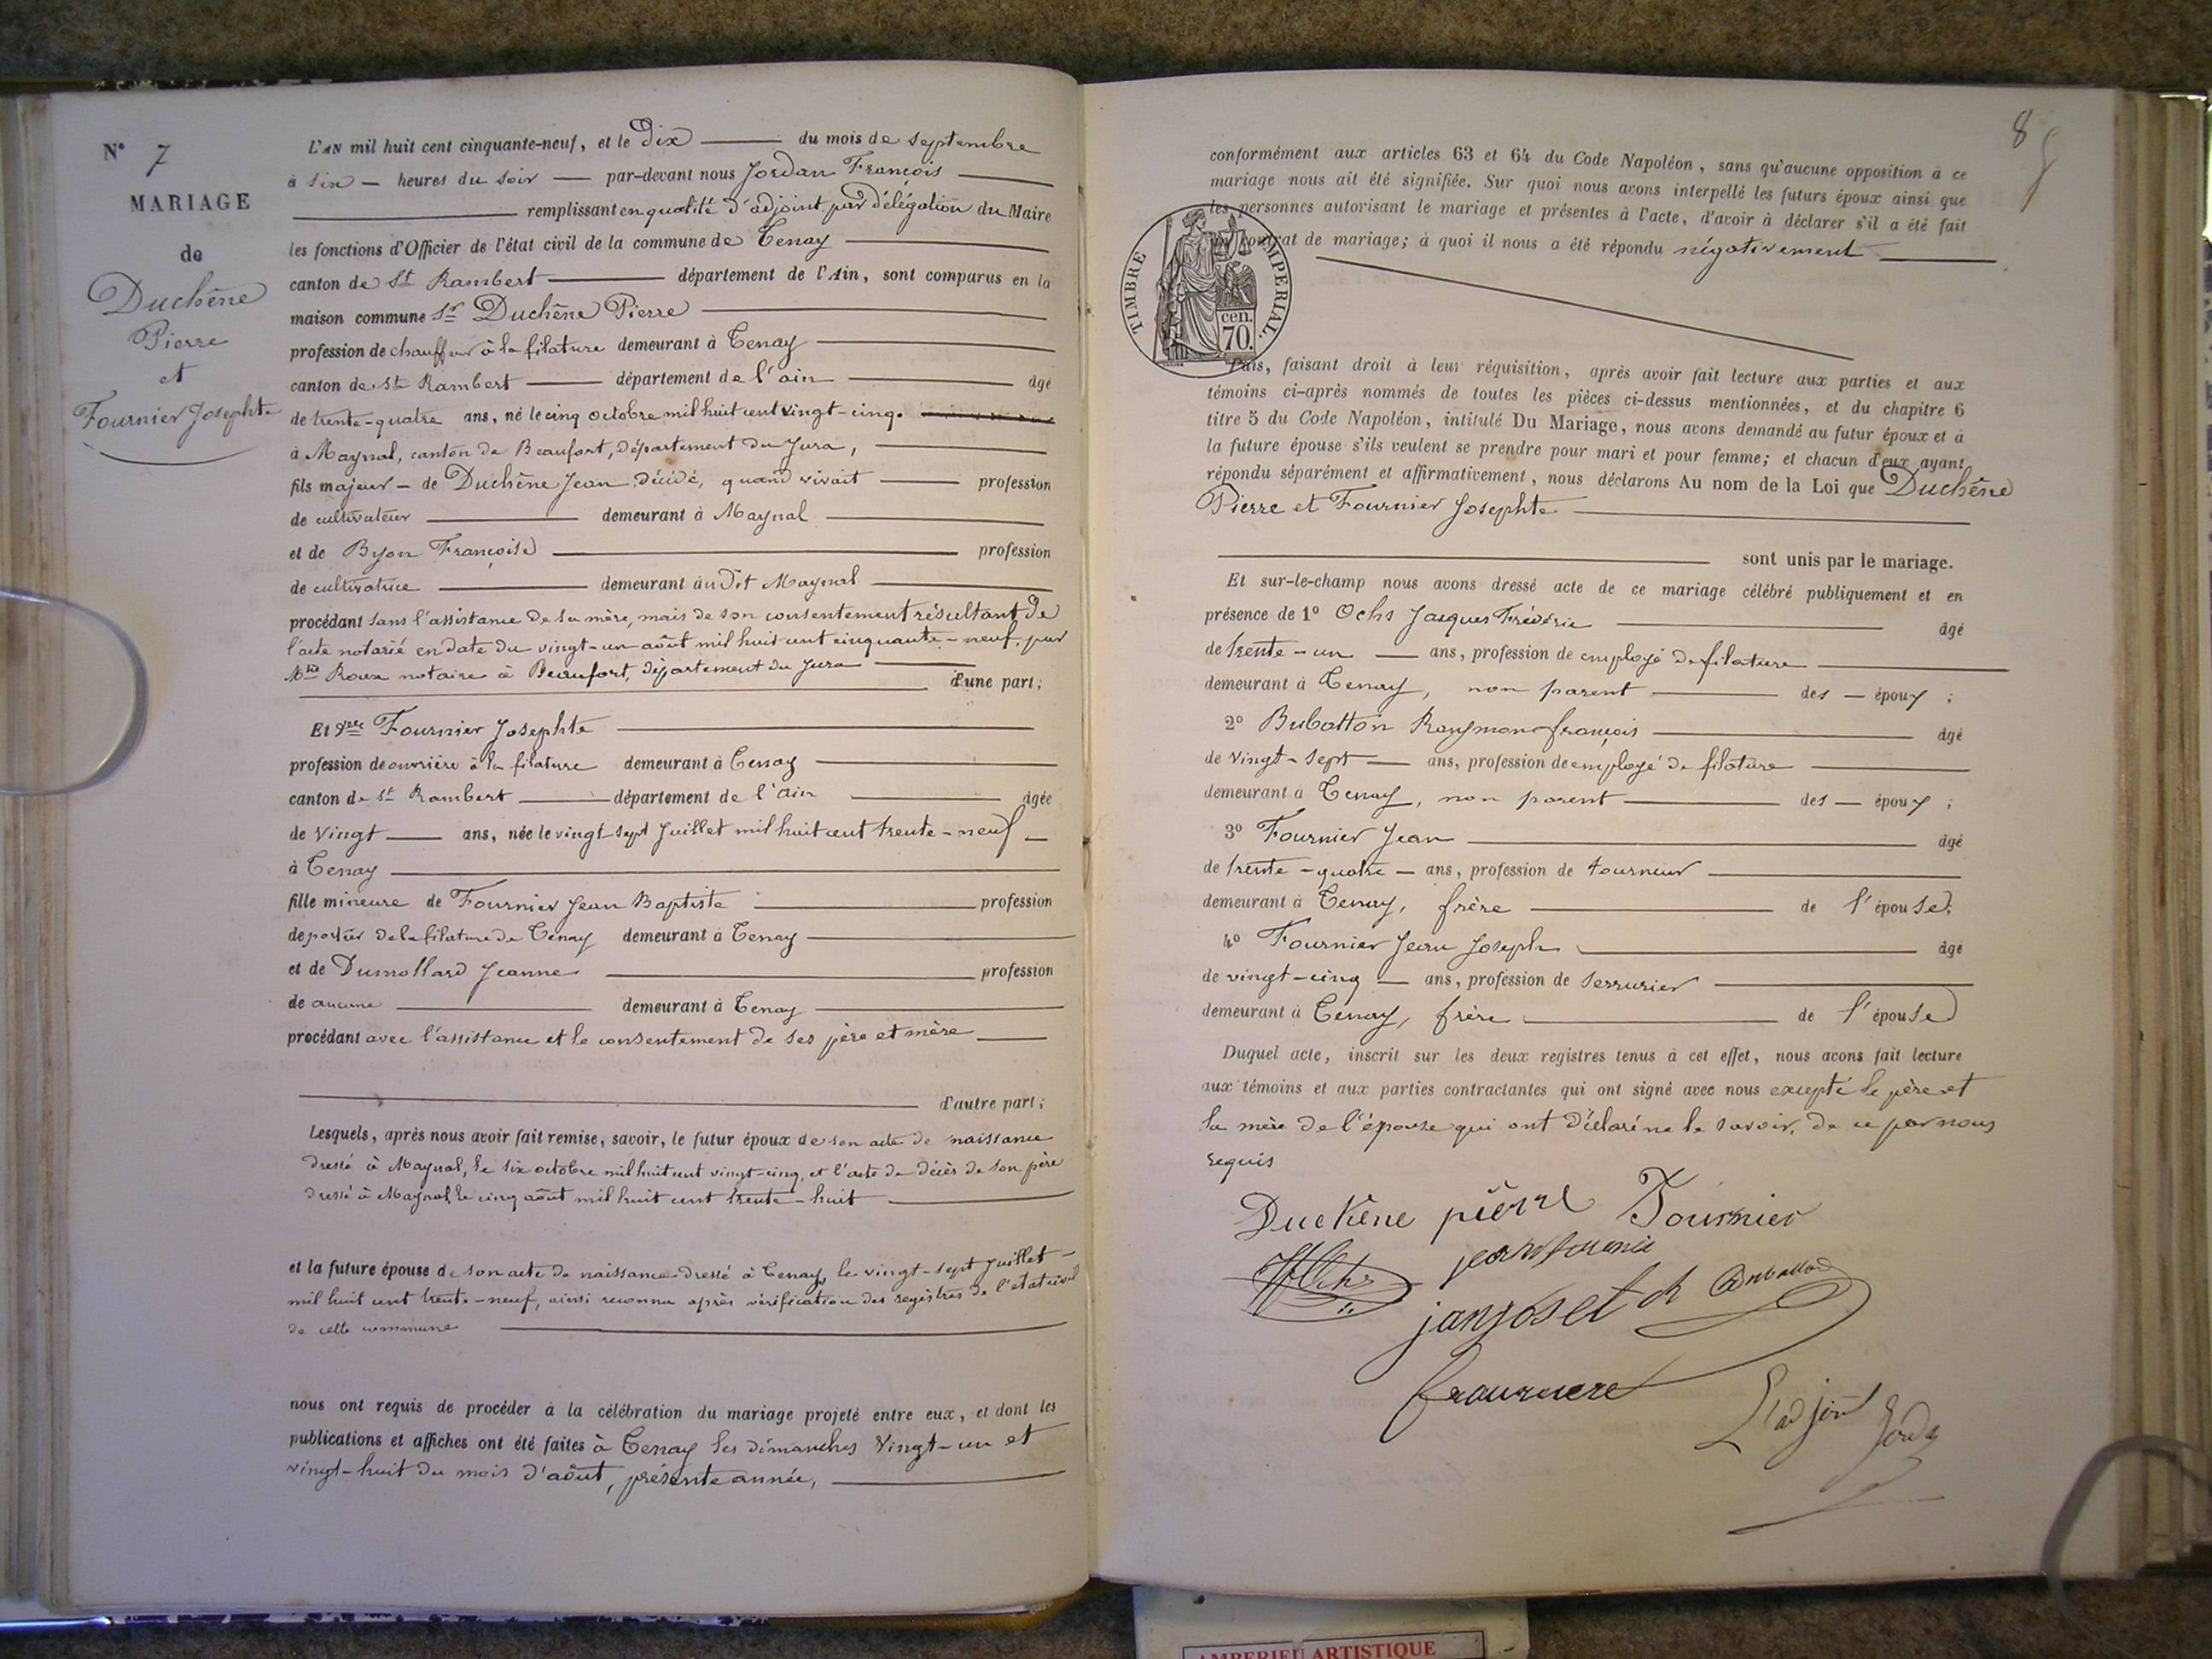 N° 7
MARIAGE
de
Duchêne
Pierre
et
Fournier Josephte
L'AN mil huit cent cinquante-neuf, et le Dix du mois de septembre
à six heures du soir par-devant nous Jordan François
remplissant en qualité d'adjoint par délégation du Maire
les fonctions d'Officier de l'état civil de la commune de Tenay
canton de St Rambert département de l'Ain, sont comparus en la
maison commune Sr Duchêne Pierre
profession de chauffeur à la filature demeurant à Tenay
canton de St Rambert département de l'ain âgé
de trente-quatre ans, né le cinq octobre mil huit cent vingt-cinq.
à Maynal, canton de Beaufort, département du Jura,
fils majeur de Duchêne Jean décédé, quand vivait profession
de cultivateur demeurant à Maynal
et de Byon Françoise profession
de cultivatrice demeurant àu dit Maynal
procédant sans l'assistance de sa mère, mais de son consentement résultant de
l'acte notarié en date du vingt-un août mil huit cent cinquante-neuf, par
Mtre Roux notaire à Beaufort, département du Jura
d'une part;
Et Fournier Josephte
profession de ouvrière à la filature demeurant à Tenay
canton de St Rambert département de l'ain âgée
de Vingt ans, née le vingt sept Juillet mil huit cent trente-neuf
à Tenay
fille mineure de Fournier Jean Baptiste profession
de portier de la filature de Tenay demeurant à Tenay
et de Dumollard Jeanne profession
de aucune demeurant à Tenay
procédant avec l'assistance et le consentement de ses père et mère
d'autre part;
Lesquels, après nous avoir fait remise, savoir, le futur époux de son acte de naissance
dressé à Maynal, le six octobre mil huit cent vingt-cinq, et l'acte de décès de son père
dressé à Maynal, le cinq août mil huit cent trente-huit
et la future épouse de son acte de naissance dressé à Tenay, le vingt-sept Juillet
mil huit cent trente-neuf, ainsi reconnu après vérification des registres de l'état civil
de cette commune
nous ont requis de procéder à la célébration du mariage projeté entre eux, et dont les
publications et affiches ont été faites à Tenay les dimanches Vingt-un et
vingt-huit du mois d'août, présente année,
8
conformément aux articles 63 et 64 du Code Napoléon, sans qu'aucune opposition à ce
mariage nous ait été signifiée. Sur quoi nous avons interpellé les futurs époux ainsi que
les personnes autorisant le mariage et présentes à l'acte, d'avoir à déclarer s'il a été fait
un contrat de mariage; à quoi il nous a été répondu négativement
TIMBRE IMPERIAL.
cen.
70.
Puis, faisant droit à leur réquisition, après avoir fait lecture aux parties et aux
témoins ci-après nommés de toutes les pièces ci-dessus mentionnées, et du chapitre 6
titre 5 du Code Napoléon, intitulé Du Mariage, nous avons demandé au futur époux et à
la future épouse s'ils veulent se prendre pour mari et pour femme; et chacun d'eux ayant
répondu séparément et affirmativement, nous déclarons Au nom de la Loi que Duchêne
Pierre et Fournier Josephte
sont unis par le mariage.
Et sur-le-champ nous avons dressé acte de ce mariage célébré publiquement et en
présence de 1° Ochs Jacques Frédéric âgé
de trente-un ans, profession de employé de filature
demeurant à Tenay, non parent des époux ;
2° Bubatton Raymon françois âgé
de vingt-sept ans, profession de employé de filature
demeurant à Tenay, non parent des époux ;
3° Fournier Jean âgé
de trente-quatre ans, profession de tourneur
demeurant à Tenay, frère de l'épouse;
4° Fournier Jean Joseph âgé
de vingt-cinq ans, profession de serrurier
demeurant à Tenay, frère de l'épouse
Duquel acte, inscrit sur les deux registres tenus à cet effet, nous avons fait lecture
aux témoins et aux parties contractantes qui ont signé avec nous excepté le père et
la mère de l'épouse qui ont déclaré ne le savoir, de ce par nous
requis
Duchene pierre Fournier
L'adjoint
AMBERIEU ARTISTIQUE